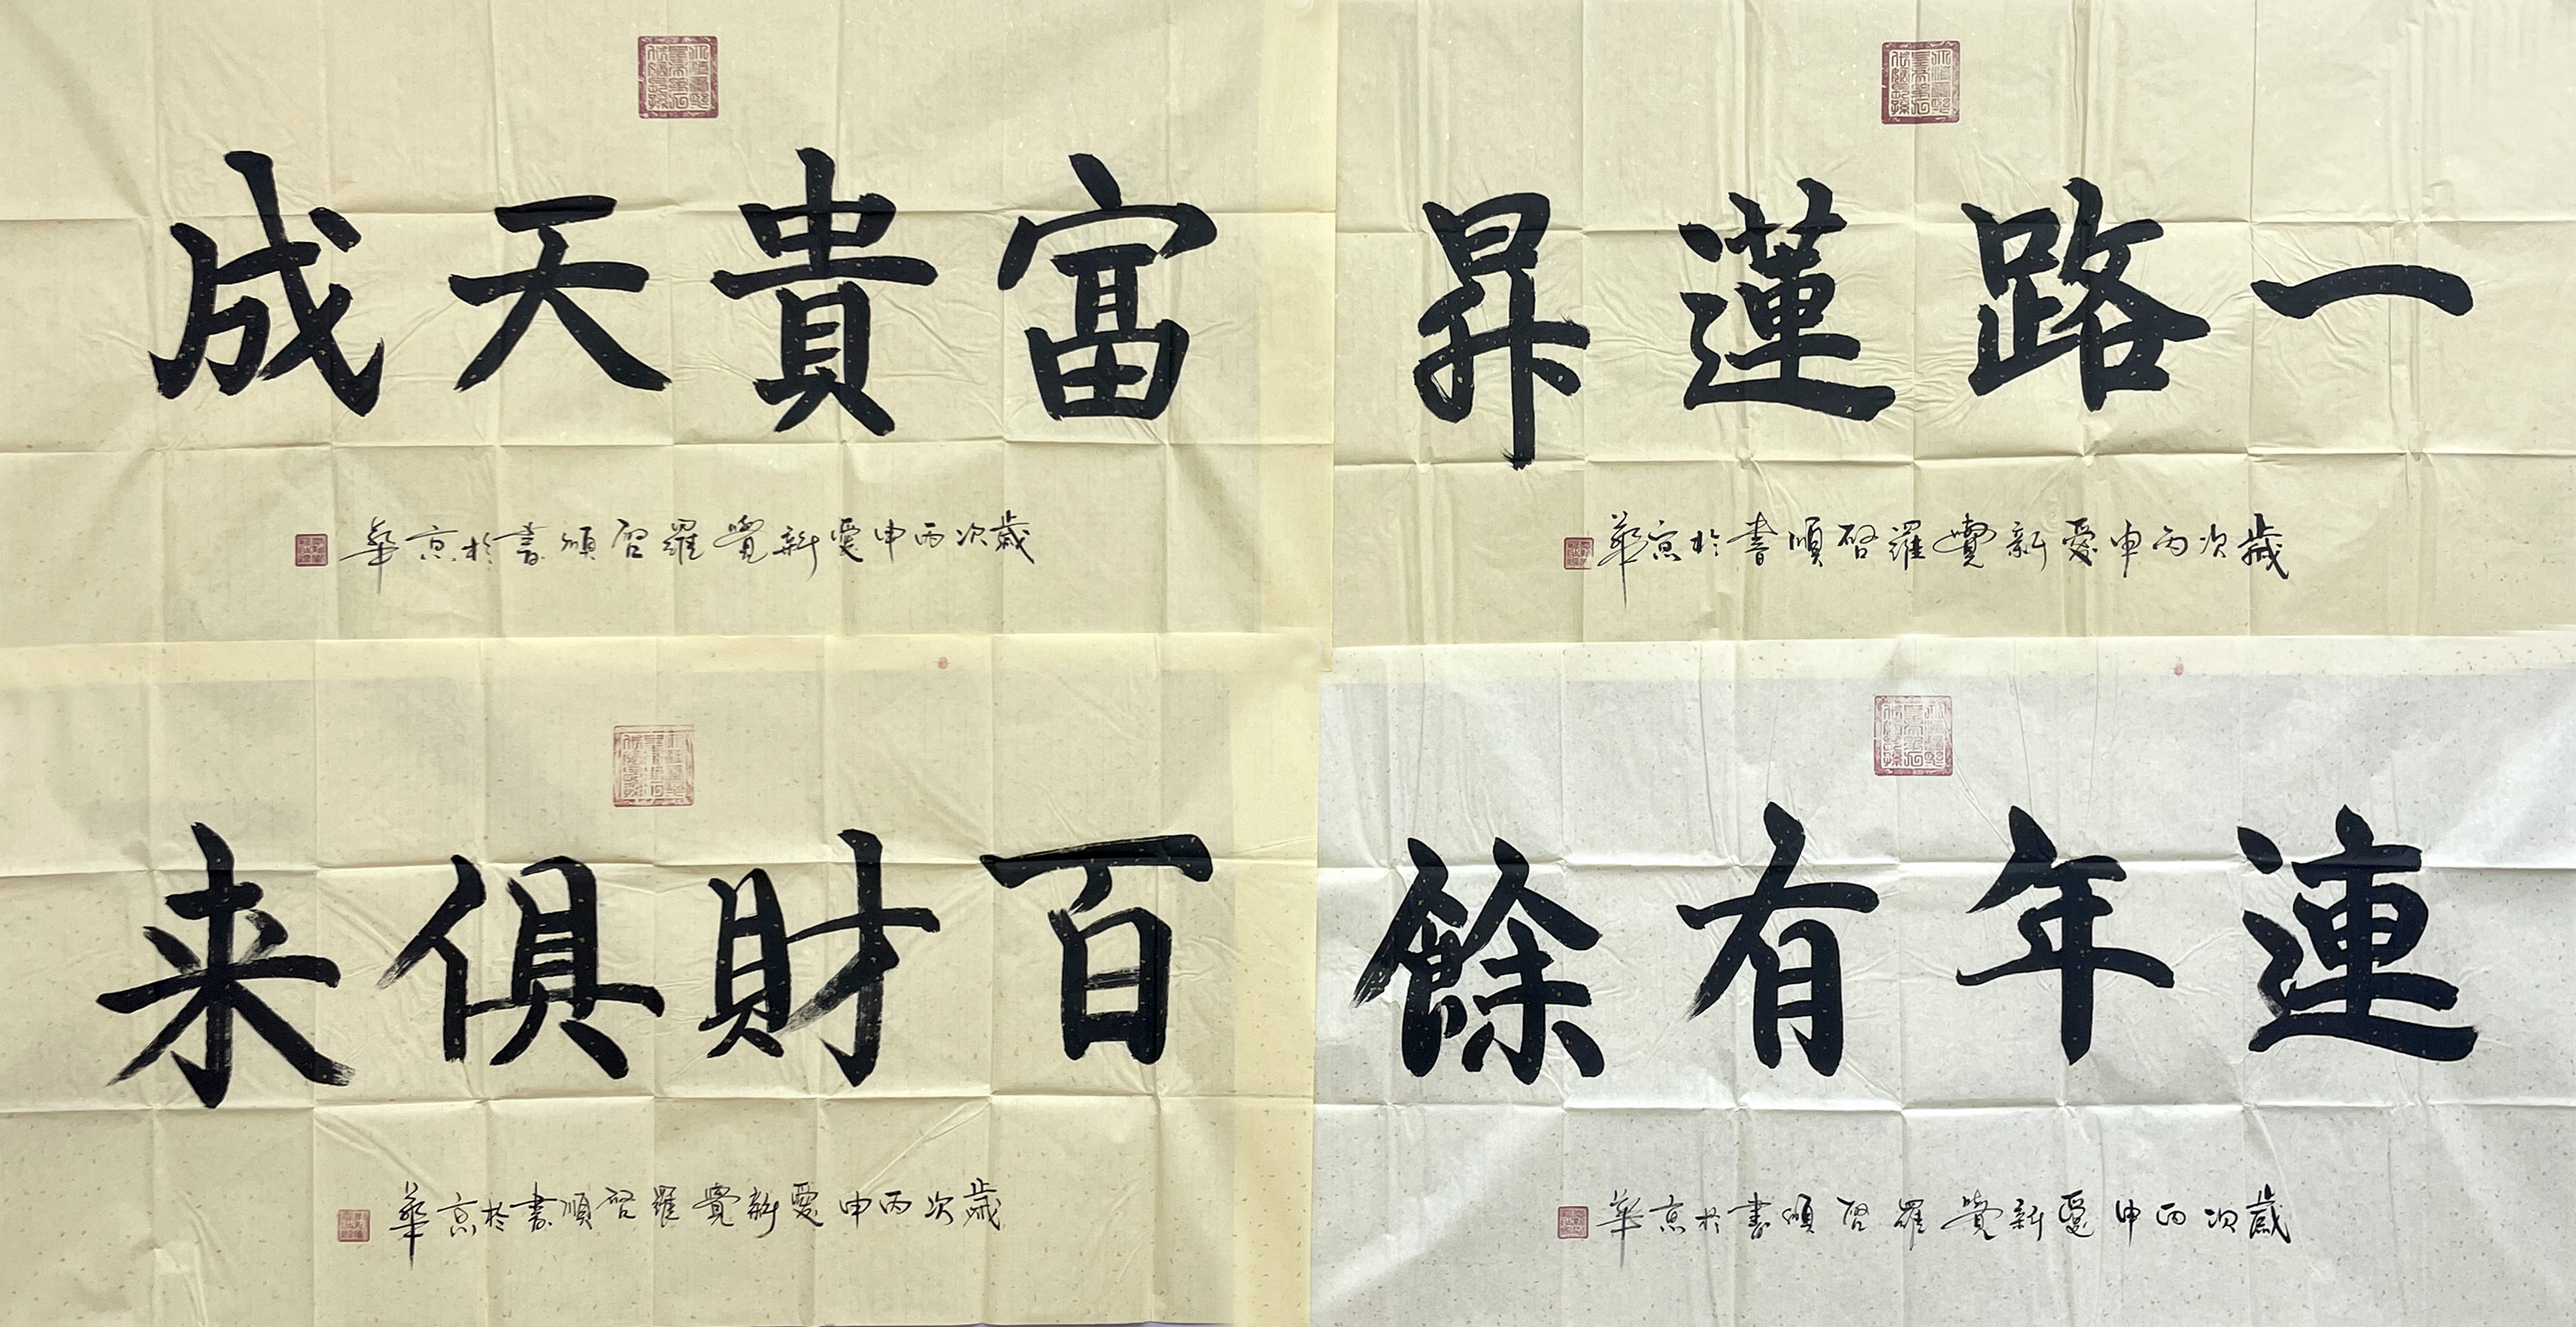 富貴天成
歲次丙申愛新覺羅啓順書於京華
一路蓮昇
歲次丙申愛新覺羅啓順書於京華
百財俱来
歲次丙申愛新覺羅啓順書於京華
連年有餘
歲次丙申愛新覺羅啓順書於京華